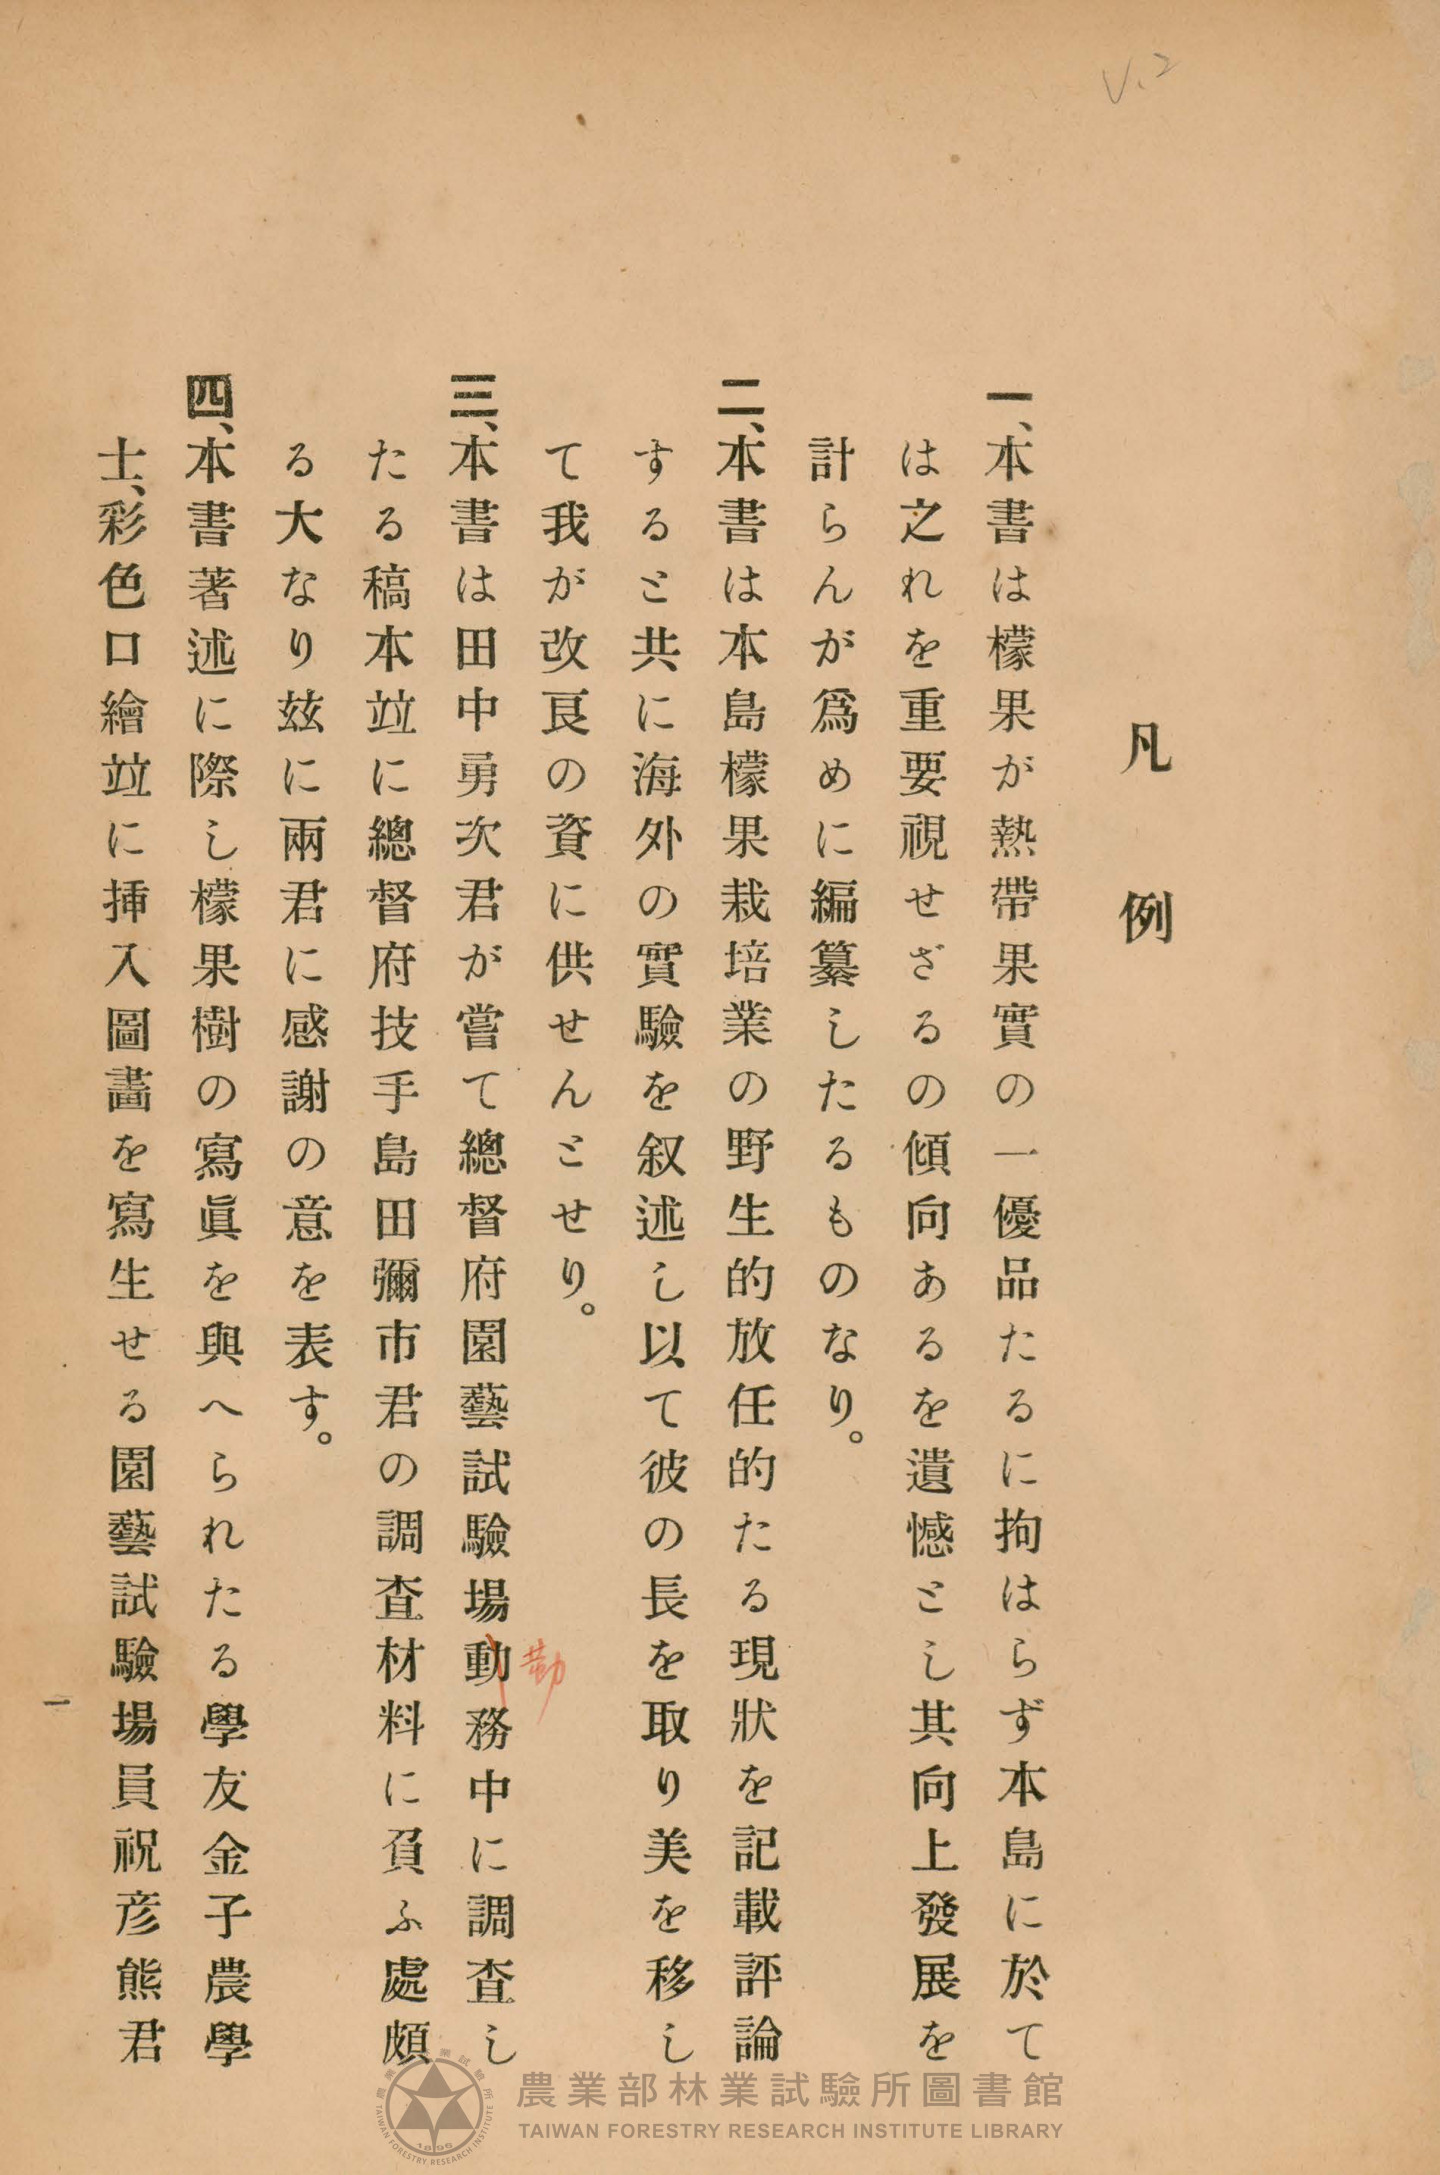 V.2
凡例
一、本書は檬果が熱帶果實の一優品たるに拘はらず本島に於て
は之れを重要視せざるの傾向あるを遺憾とし其向上發展を
計らんが爲めに編纂したるものなり。
二、本書は本島檬果栽培業の野生的放任的たる現狀を記載評論
すると共に海外の實驗を叙述し以て彼の長を取り美を移し
て我が改良の資に供せんとせり。
三、本書は田中勇次君が嘗て總督府園藝試驗場動務中に調査し
勤
たる稿本竝に總督府技手島田彌市君の調査材料に負ふ處頗
る大なり玆に兩君に感謝の意を表す。
四、本書著述に際し檬果樹の寫眞を與へられたる學友金子農學
士、彩色口繪竝に挿入圖畵を寫生せる園藝試驗場員祝彦熊君
一
農業部林業試驗所圖書館
TAIWAN FORESTRY RESEARCH INSTITUTE LIBRARY
農業部林業試驗所
TAIWAN FORESTRY RESEARCH INSTITUTE
1896